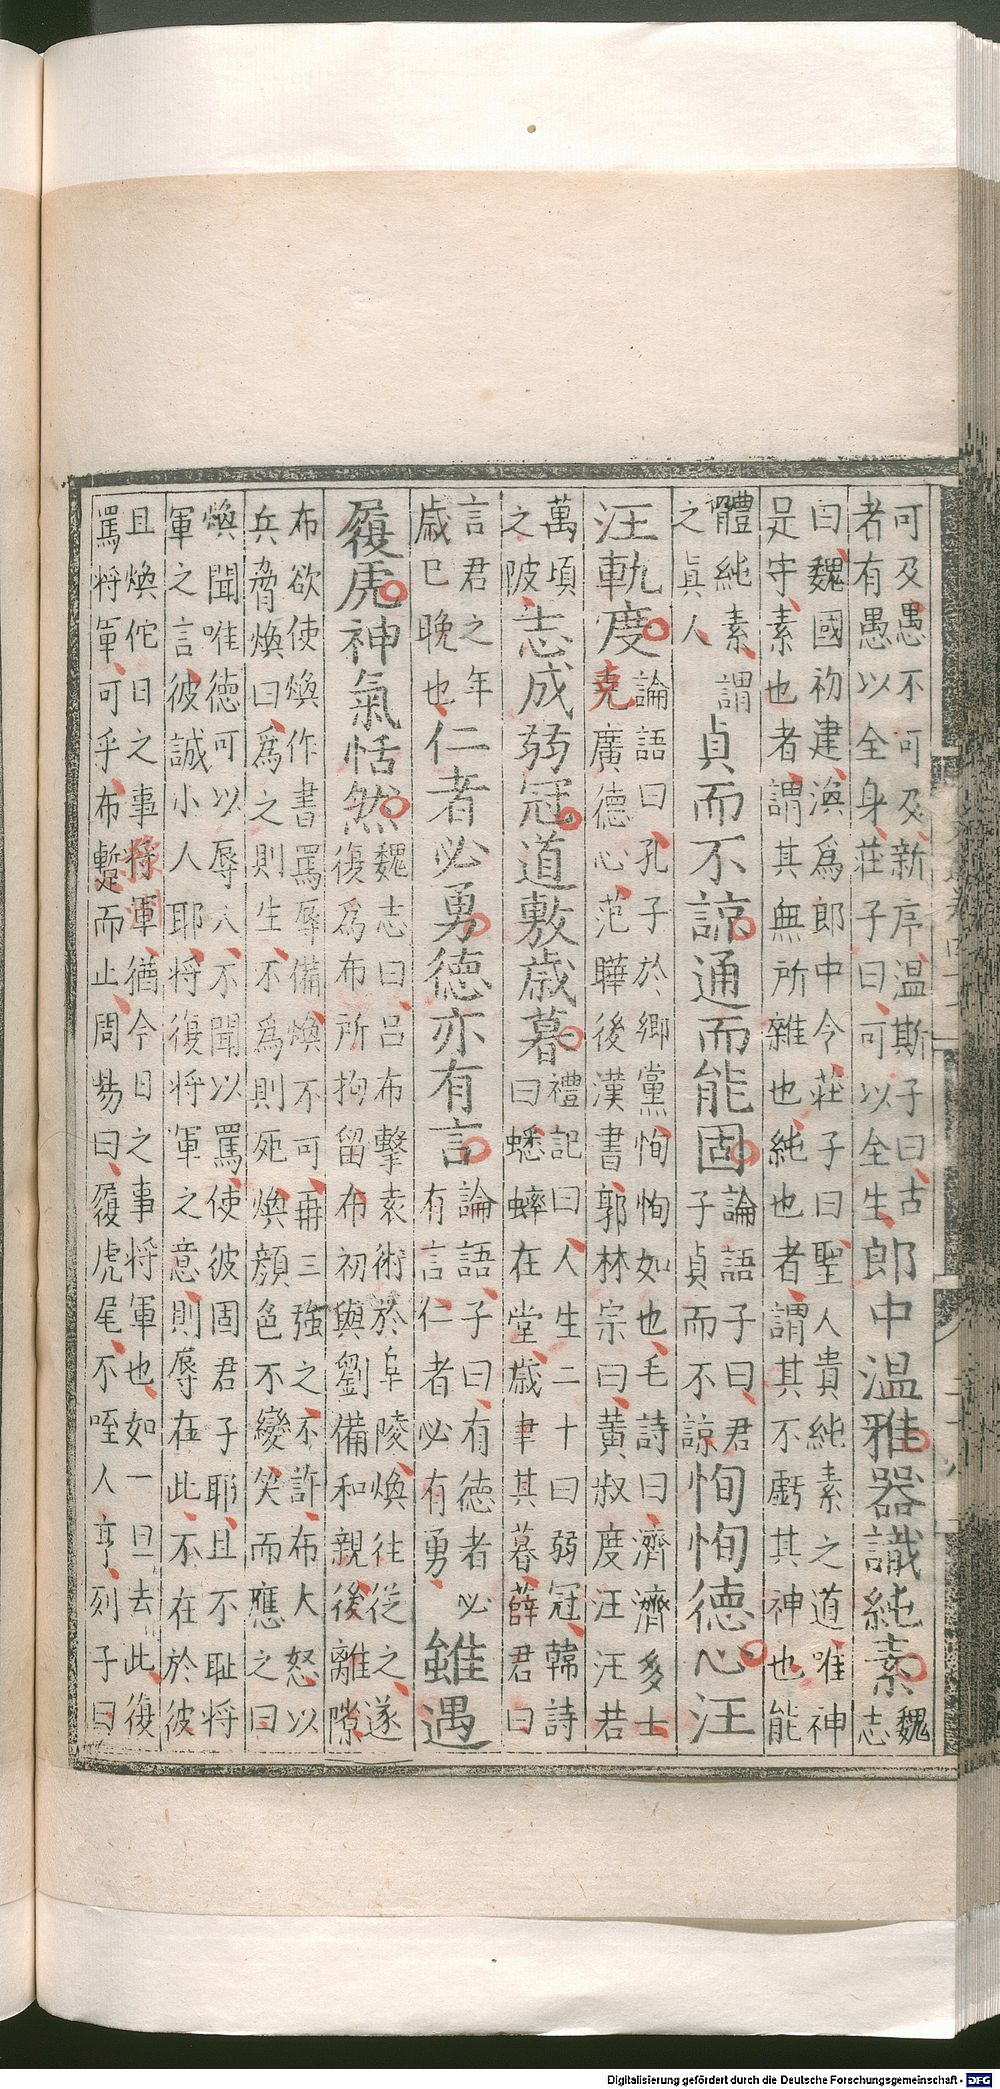 可及愚不可及新序温斯子曰古
者有愚以全身莊子曰可以全生
郎中温雅器識純素
魏
志
曰魏國初建渙為郎中令莊子曰聖人貴純素之道唯神
是守素也者謂其無所雜也純也者謂其不虧其神也能
體純素謂
之真人
貞而不諒通而能固
論語子曰君
子貞而不諒
恂恂德心汪
汪軌度
論語曰孔子於鄉黨恂恂如也毛詩曰濟濟多士
堯廣德心范曄後漢書郭林宗曰黃叔度汪汪若
萬頃
之陂
志成弱冠道敷歳暮
禮記曰人生二十曰弱冠韓詩
曰蟋蟀在堂歳聿其暮薛君曰
言君之年
歳已晚也
仁者必勇德亦有言
論語子曰有德者必
有言仁者必有勇
雖遇
履虎神氣恬然
魏志曰呂布擊袁術於阜陵煥往從之遂
復為布所拘留布初與劉備和親後離隙
布欲使煥作書罵辱備煥不可再三強之不許布大怒以
兵脅煥曰為之則生不為則死煥顏色不變笑而應之曰
煥聞唯德可以辱人不聞以罵使彼固君子耶且不恥將
軍之言彼誠小人耶將復將軍之意則辱在此不在於彼
且煥佗日之事將軍猶今日之事將軍也如一旦去此復
罵將軍可乎布慙而止周易曰履虎尾不咥人亨列子曰
Digitalisierung gefördert durch die Deutsche Forschungsgemeinschaft - DFG